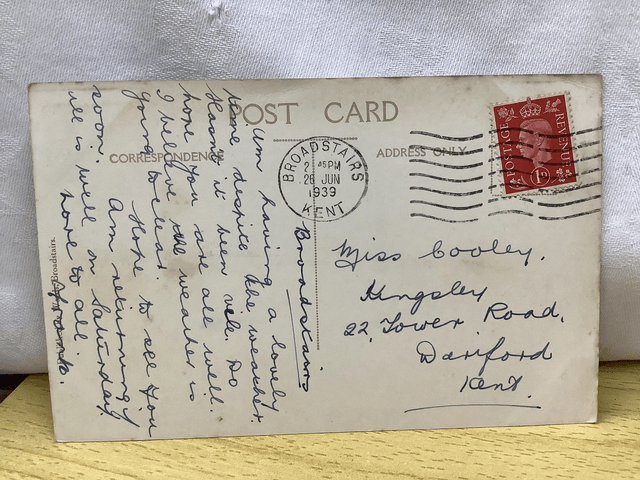 POST CARD
CORRESPONDENCE
ADDRESS ONLY
BROADSTAIRS
45PM
JUN
1939
KENT
POSTAGE
REVENUE
1D
Miss Cooley.
Kingsley
22, Tower Road.
Dartford
Kent.
Broadstairs
Am having a lovely
time despite the weather.
Hasn't it been vile. Do
hope you are all well.
I believe the weather is
going to clear.
Hope to see you
soon. Am returning if
all is well on Saturday
Love to all.
Broadstairs.